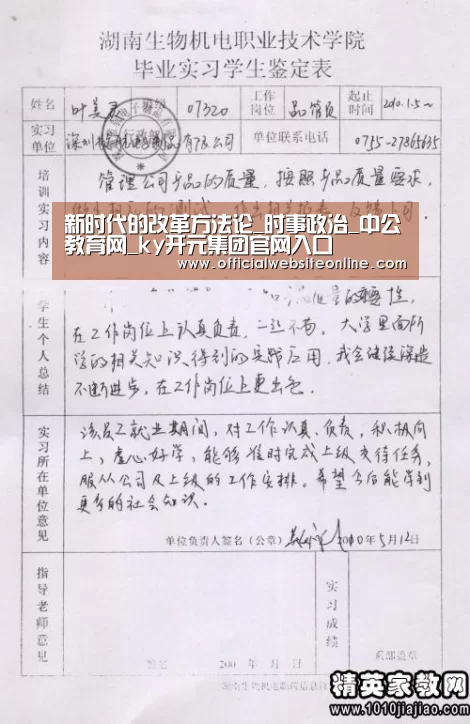 湖南生物机电职业技术学院
毕业实习学生鉴定表
姓名 叶美 07320 工作岗位 品管员 起止时间 2010.1.5~
实习单位 深圳 有限公司 单位联系电话 0755-27865635
行政部
培训实习内容
管理公司产品的质量,按照产品质量要求,
新时代的改革方法论_时事政治_中公
教育网_ky开元集团官网入口
www.officialwebsiteonline.com
学生个人总结
的重要性,
在工作岗位上认真负责,一丝不苟,大学里面所
学的相关知识得到的实践应用,我会继续深造
不断进步,在工作岗位上更出色.
实习所在单位意见
该员工就业期间,对工作认真、负责,积极向
上,虚心好学,能够准时完成上级交待任务,
服从公司及上级的工作安排。希望今后能学到
更多的社会知识.
单位负责人签名(公章) 2010年5月12日
指导老师意见
实习成绩
签名 200 年 月 日
系部盖章
精英家教网
www.1010jiajiao.com